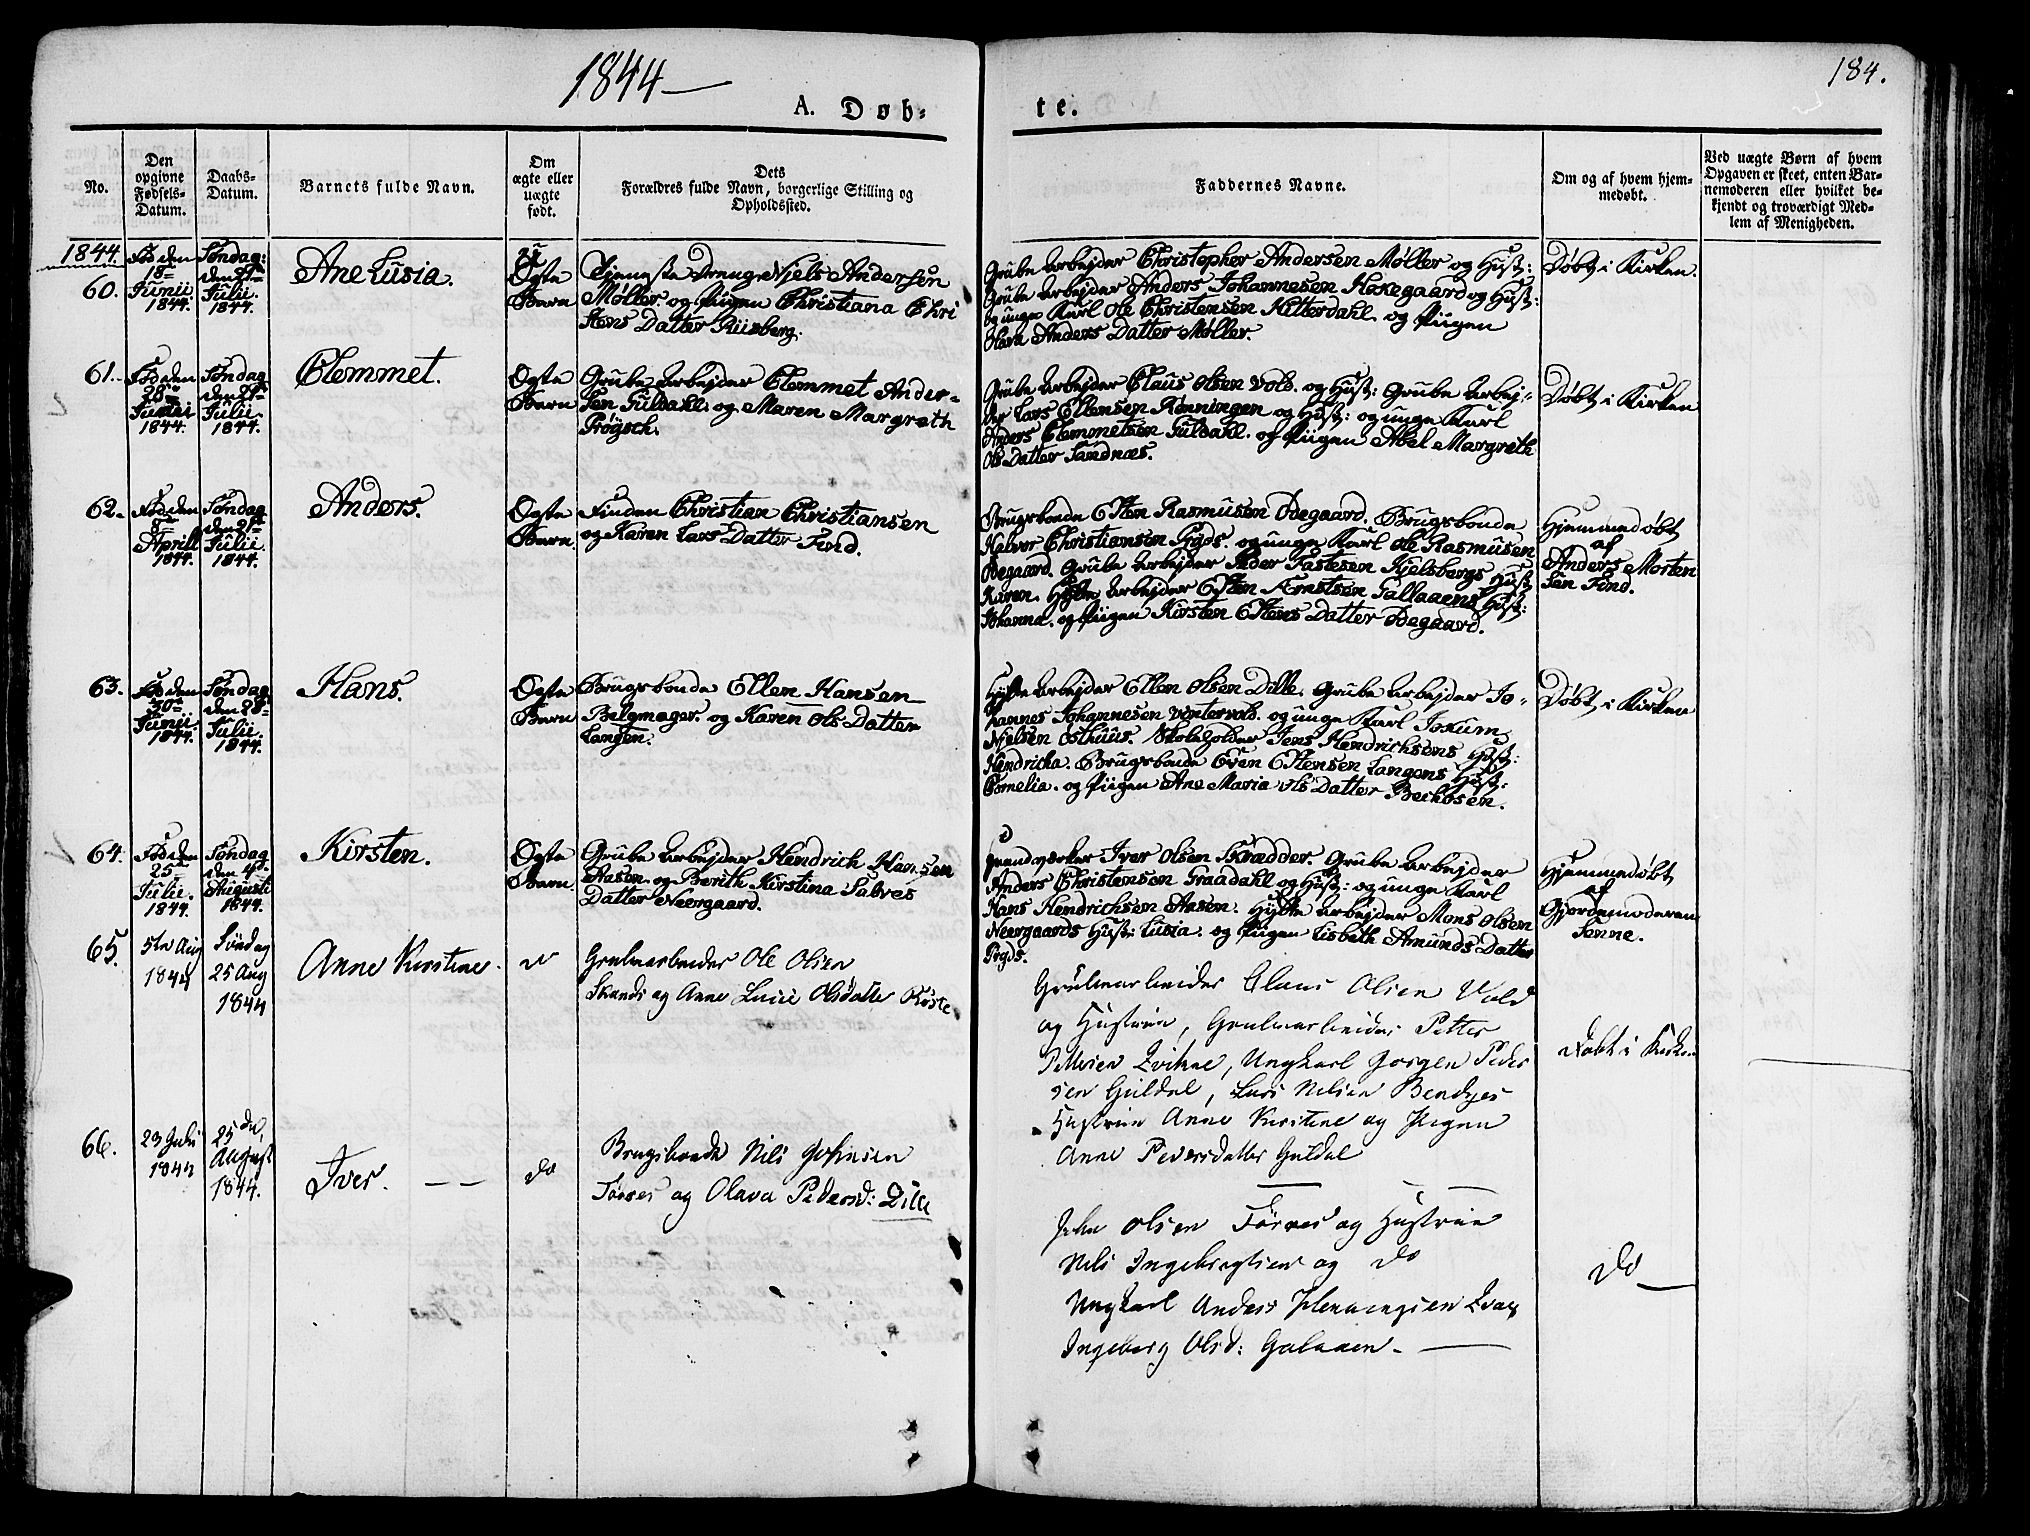 1844
184.
A. Døb-
te.
No.
Den opgivne Fødsels-Datum.
Daabs-Datum.
Barnets fulde Navn.
Om ægte eller uægte født.
Dets Forældres fulde Navn, borgerlige Stilling og Opholdssted.
Faddernes Navne.
Om og af hvem hjemmedøbt.
Ved uægte Børn af hvem Opgaven er skeet, enten Barnemoderen eller hvilket bekjendt og troværdigt Medlem af Menigheden.
1844.
60.
Fød den
18
Junii
1844.
Søndag:
den 21
Julii.
1844.
Ane Lusia.
Ægte
Barn
Tjeneste Dreng Njels Andersen
Møller og Piigen Christiana Chri
stens Datter Riisberg.
Grube Arbejder Christopher Andersen Møller og Hust:
Grube Arbejder Anders Johannesen Hakegaard og Hust:
og unge Karl Ole Christensen Hitterdahl. og Piigen
Anders Datter Møller.
Døbt i Kirken.
61.
Fød den
28
Junii
1844.
Søndag
den 21
Julii.
1844.
Clemmet.
Ægte
Barn
Grube Arbejder Clemmet Ander-
sen Guldahl. og Maren Margreth
Prøysch.
Grube Arbejder Claus Olsen Vold. og Hust: Grube Arbej-
der Lars Ellensen Rønningen og Hust: og unge Karl
Anders Clemmetsen Guldahl. og Piigen Abel Margreth
Ols Datter Sandnæs.
Døbt i Kirken
62.
Fød den
8
Aprill
1844.
Søndag
den 28
Julii.
1844.
Anders.
Ægte
Barn.
Finden Christian Christiansen
og Karen Lars Datter Find.
Brugsbonde Esten Rasmusen Ødegaard. Brugsbonde
Halvor Christiansen Gryds. og unge Karl Ole Rasmusen
Ødegaard. Grube Arbejder Peder Fastesen Kjelsbergs Hust
Karen. Hytte Arbejder Esten Arnstsen Gallaaens Hust:
Johanna. og Piigen Kirsten Estens Datter Ødegaard.
Hjemmedøbt
af
Anders Morten
sen Find.
63.
Fød den
30
Junii
1844.
Søndag
den 28
Julii.
1844.
Hans.
Ægte
Barn
Brugsbonde Ellen Hansen
Belgmager. og Karen Ols Datter
Langen.
Hytte Arbejder Ellen Olsen Dille. Grube Arbejder Jo-
hannes Johannesen Vintervold. og unge Karl Jokum
Njelsen Osthuus. Skoleholder Jens Hendrichsens Hust:
Hendricka. Brugsbonde Even Estensen Langens Hust:
Cornelia. og Piigen Ane Maria Ols Datter Beckosen.
Døbt i Kirken
64.
Fød den
25
Julii.
1844.
Søndag
den 4
Augusti
1844.
Kirsten.
Ægte
Barn.
Grube Arbejder Hendrich Hansen
Aasen. og Berith Kirstina Salves
Datter Neergaard.
Haandværker Iver Olsen Skrædder. Grube Arbejder
Anders Christensen Graadahl og Hust: og unge Karl
Hans Hendrichsen Aasen. Hytte Arbejder Mons Olsen
Neergaards Hust: Lusia. og Piigen Lisbeth Amunds Datter
Gryds.
Hjemmedøbt
af
Gjordemoderen
Senne.
65.
5te Aug
1844
Søndag
25 Aug
1844
Anne Kirstine.
do
Grubearbeider Ole Olsen
Skands og Anne Lucie Olsdatter Røste
Grubearbeider Claus Olsen Vold
og Hustrue, Grubearbeider Petter
Pettersen Evihne, Ungkarl Jørgen Peder
sen Guldal, Lars Nilsen Bendyes
Hustrue Anne Kirstine og Pigen
Anne Pedersdatter Guldal
Døbt i Kirken
66.
23 Juli
1844
25 de,
August
1844.
Iver.
do
Brugsbonde Nils Johnsen
Tørres og Olava Pedersd: Dille
John Olsen Tørres og Hustrue
Nils Ingebrigtsen og do
Ungkarl Anders Henningsen
Ingeborg Olsd: Galaaen.
do